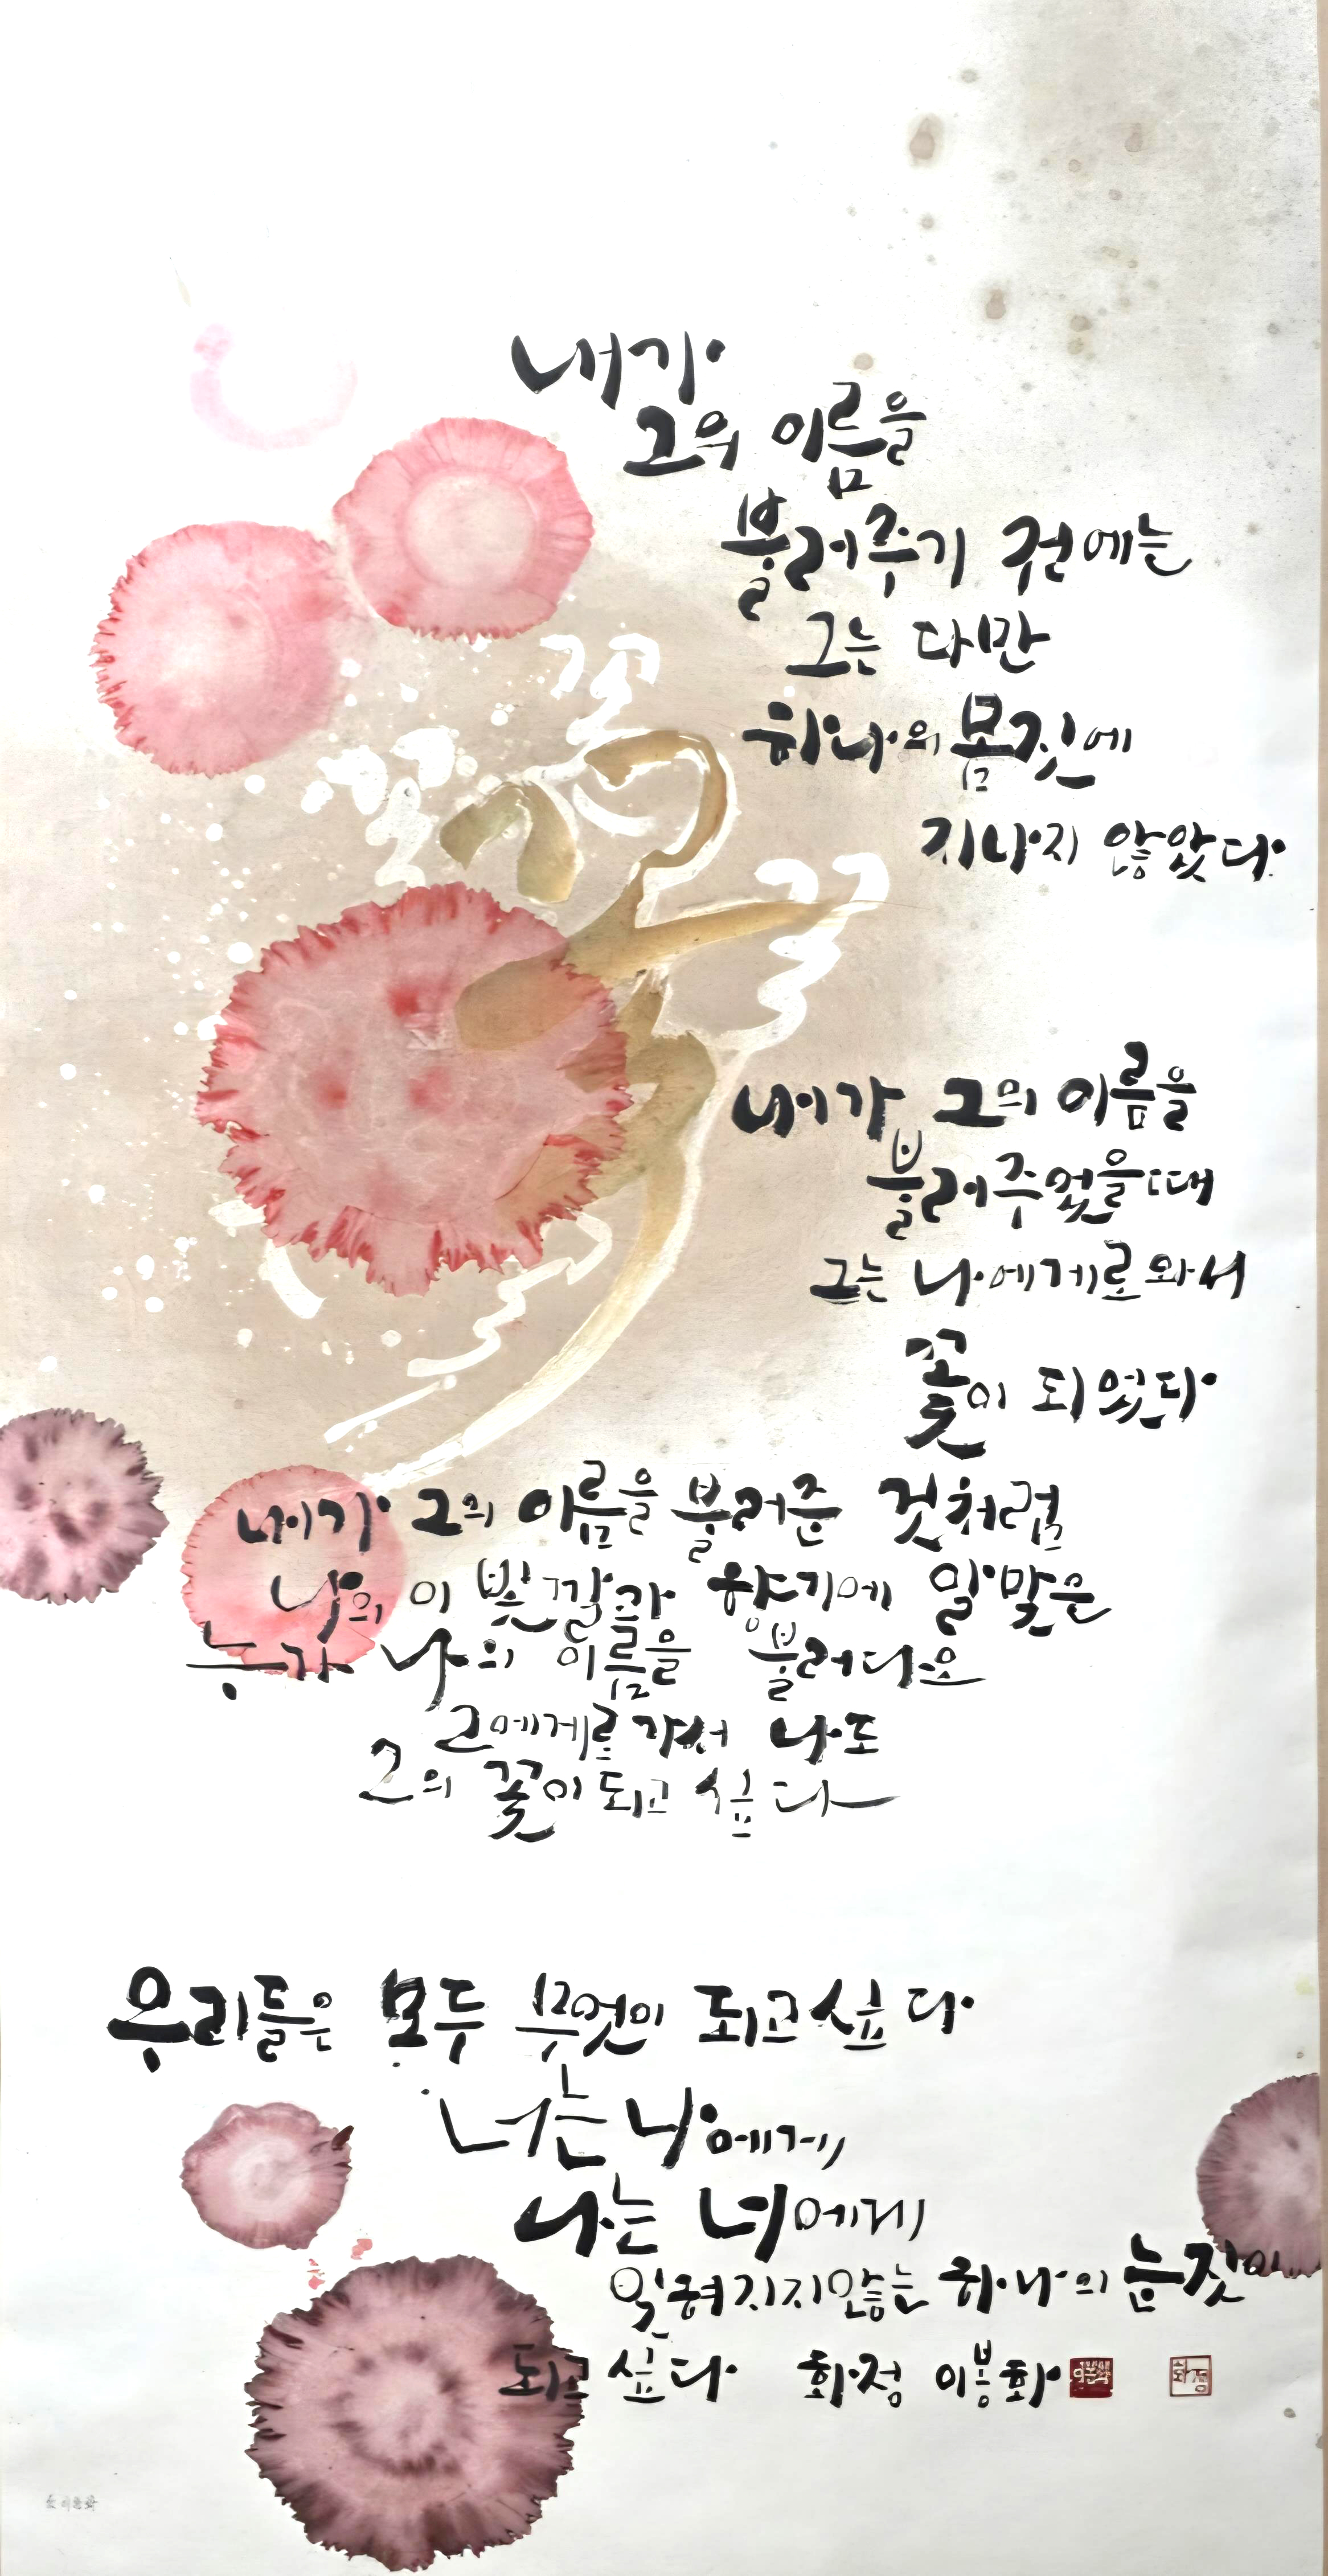 내가
그의 이름을
불러주기 전에는
그는 다만
하나의 몸짓에
지나지 않았다.
내가 그의 이름을
불러주었을때
그는 나에게로 와서
꽃이 되었다
내가 그의 이름을 불러준 것처럼
나의 이 빛깔과 향기에 알맞은
누가 나의 이름을 불러다오
그에게로 가서 나도
그의 꽃이 되고 싶다
우리들은 모두 무엇이 되고 싶다
너는 나에게
나는 너에게
잊혀지지않는 하나의 눈짓이
되고 싶다 화정 이봉화
화정
꽃
꽃